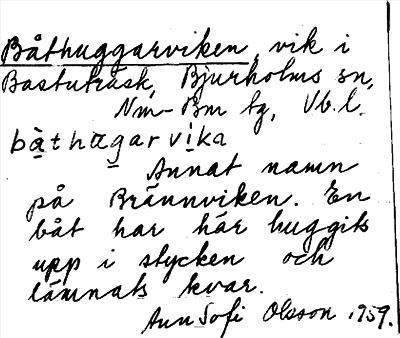 Båthuggarviken, vik i
Bastuträsk, Bjurholms sn,
Nm-Bm tg, Vb. l.
bàthagarvika
Annat namn
på Brännviken. En
båt har här huggits
upp i stycken och
lämnats kvar.
Ann Sofi Olsson 1959.